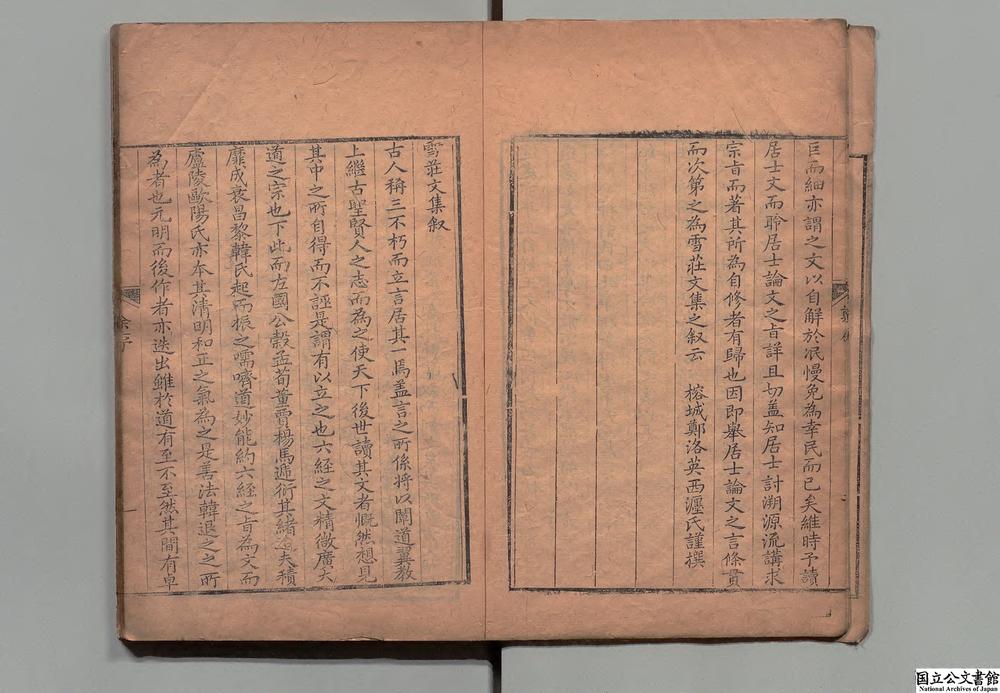 巨而細亦謂之文以自解於泯慢免為幸民而已矣維時予讀
居士文而聆居士論文之旨詳且切盖知居士討溯源流講求
宗旨而著其所為自修者有歸也因即舉居士論文之言條貫
而次第之為雪莊文集之叙云　榕城鄭洛英西瀍氏謹撰
雪莊文集叙
古人稱三不朽而立言居其一焉盖言之所係將以闡道翼教
上繼古聖賢人之志而為之使天下後世讀其文者慨然想見
其中之所自得而不誣是謂有以立之也六經之文精微廣大
道之宗也下此而左國公穀孟荀董賈楊馬遞衍其緒逮夫積
靡成衰昌黎韓氏起而振之嚅嚌道妙能約六經之旨為文而
廬陵歐陽氏亦本其清明和正之氣為之是善法韓退之之所
為者也元明而後作者亦迭出雖於道有至不至然其間有卓
国立公文書館
National Archives of Japan